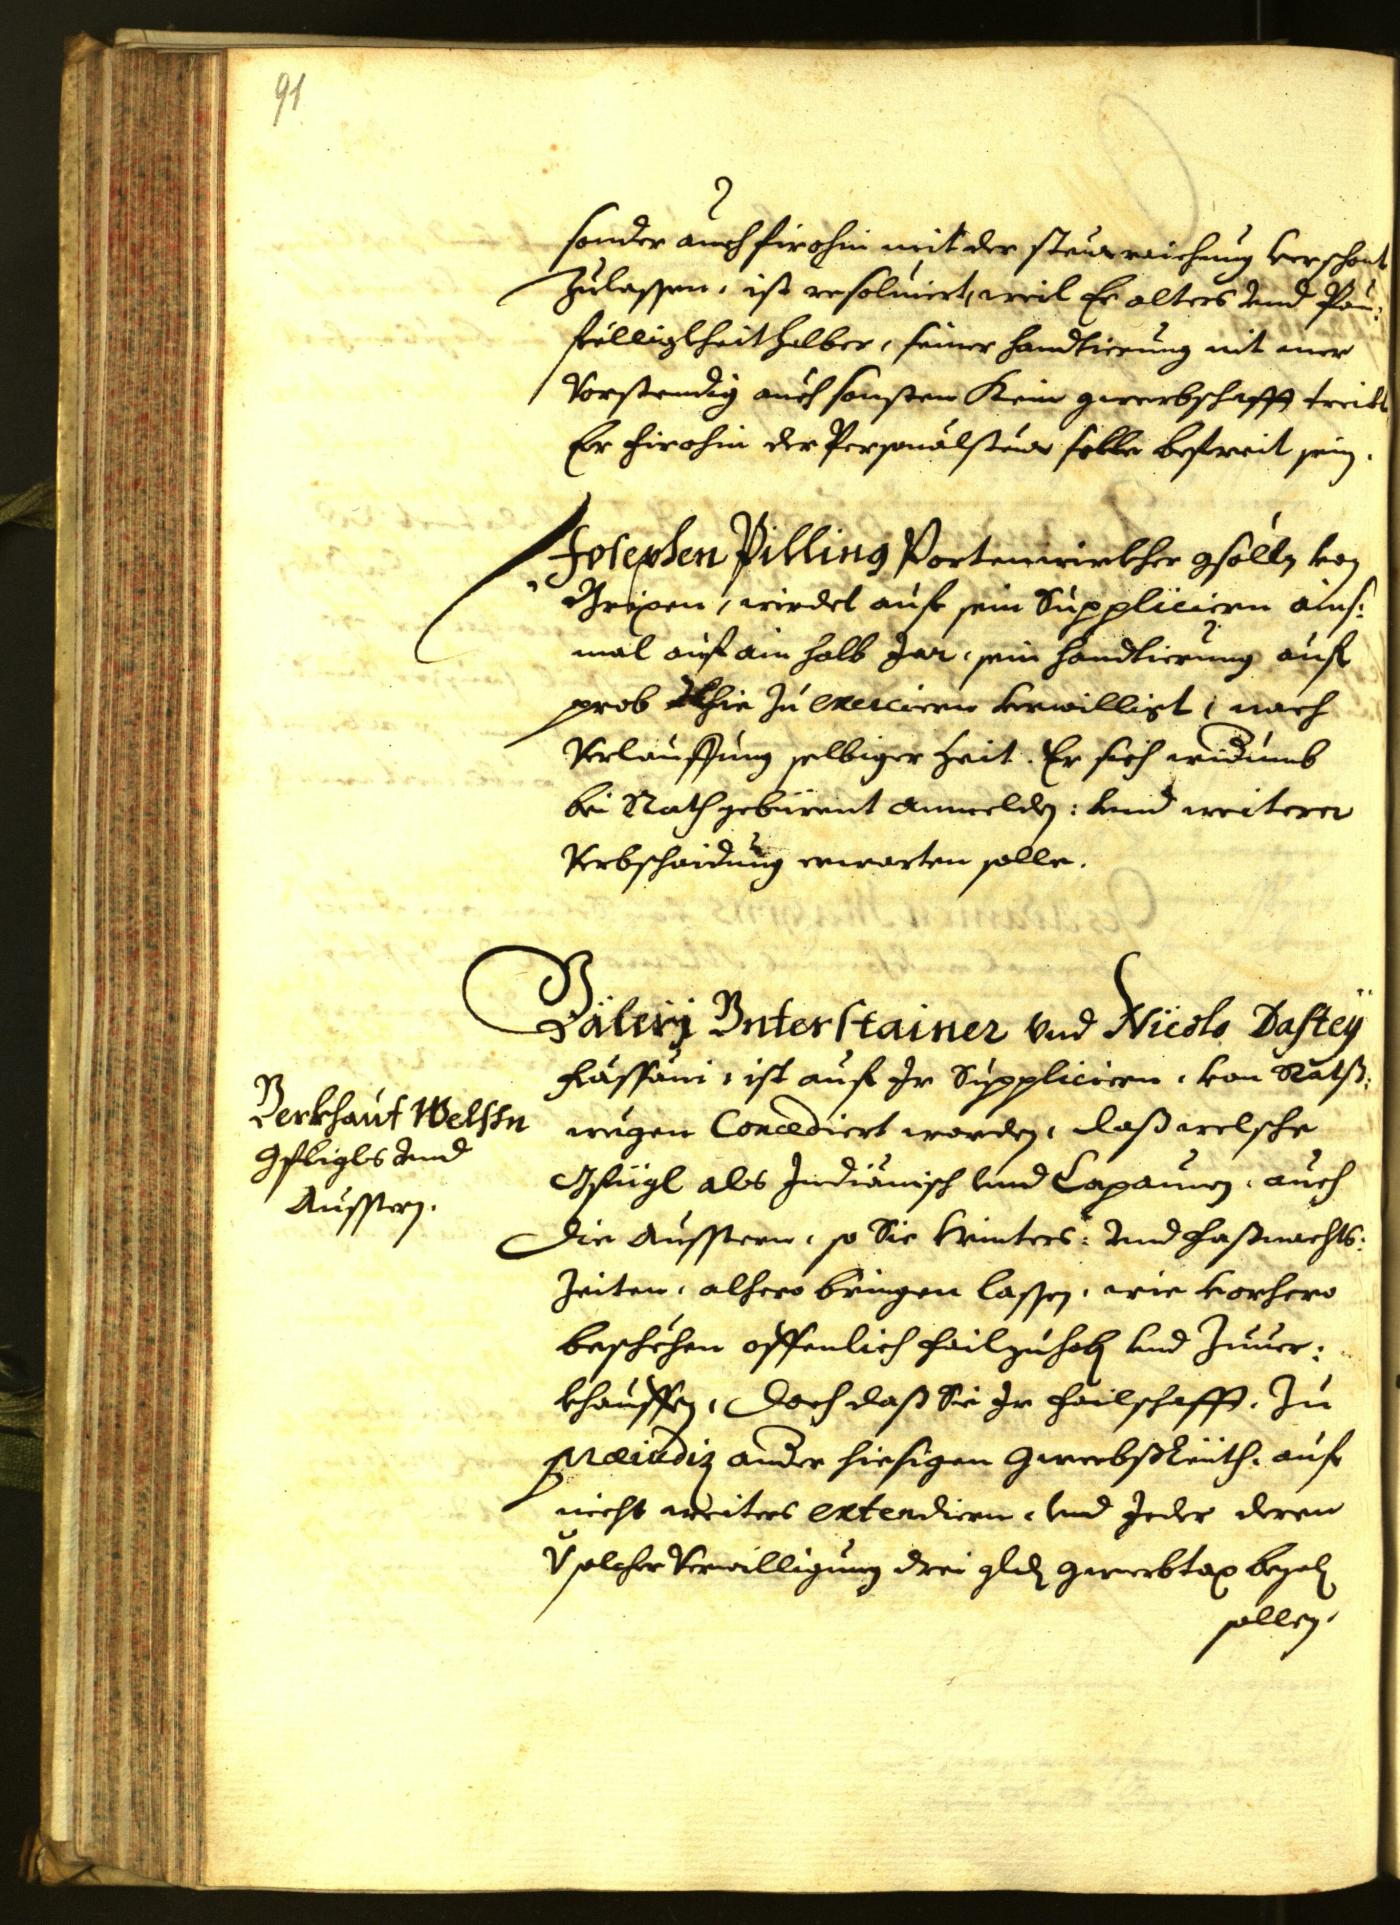 91
sonder auch firohin mit der steurraichung verschont
zulassen, ist resoluiert, weil Er alters vnd Pau:
felligkheit halber, seiner handtierung nit mer
vorstendig auch sonsten kein gwerbschafft treibt
Er firohin der Personalsteur solle befreit sein.
Josephen Pilling Portenwirkher gsölln von
Brixen, wirdet auf sein Suppliciern ains:
mal auf ain halb Jar, sein handtierung auf
prob alhie zu exerciern verwilligt, nach
Verlauffung selbiger Zeit. Er sich widumb
bei Rath gebürent anmelden: vnd weiterer
Verbschaidung erwarten solle.
Väleri Vnterstainer vnd Nicolo Dastey
Fässäni, ist auf Ir Suppliciern, von Rathß:
wegen Concediert worden, daß welsche
Gflügl als Indiänisch vnd Capaunen, auch
die Austern, so Sie Winters: vnd Faßnachts:
Zeiten, alhero bringen lassen, wie vorhero
beschehen offenlich failzuhaben vnd zuuer:
khauffen, doch daß Sie Ir failschafft, zu
præiudiz ander hiesigen Gwerbsleüth, auf
nicht weiters extendiern, vnd Jeder deren
v solcher Verwilligung drei gldn gwerbtax bezaln
sollen.
Verkhauf Welschn
Gfligls vnd
Austern.